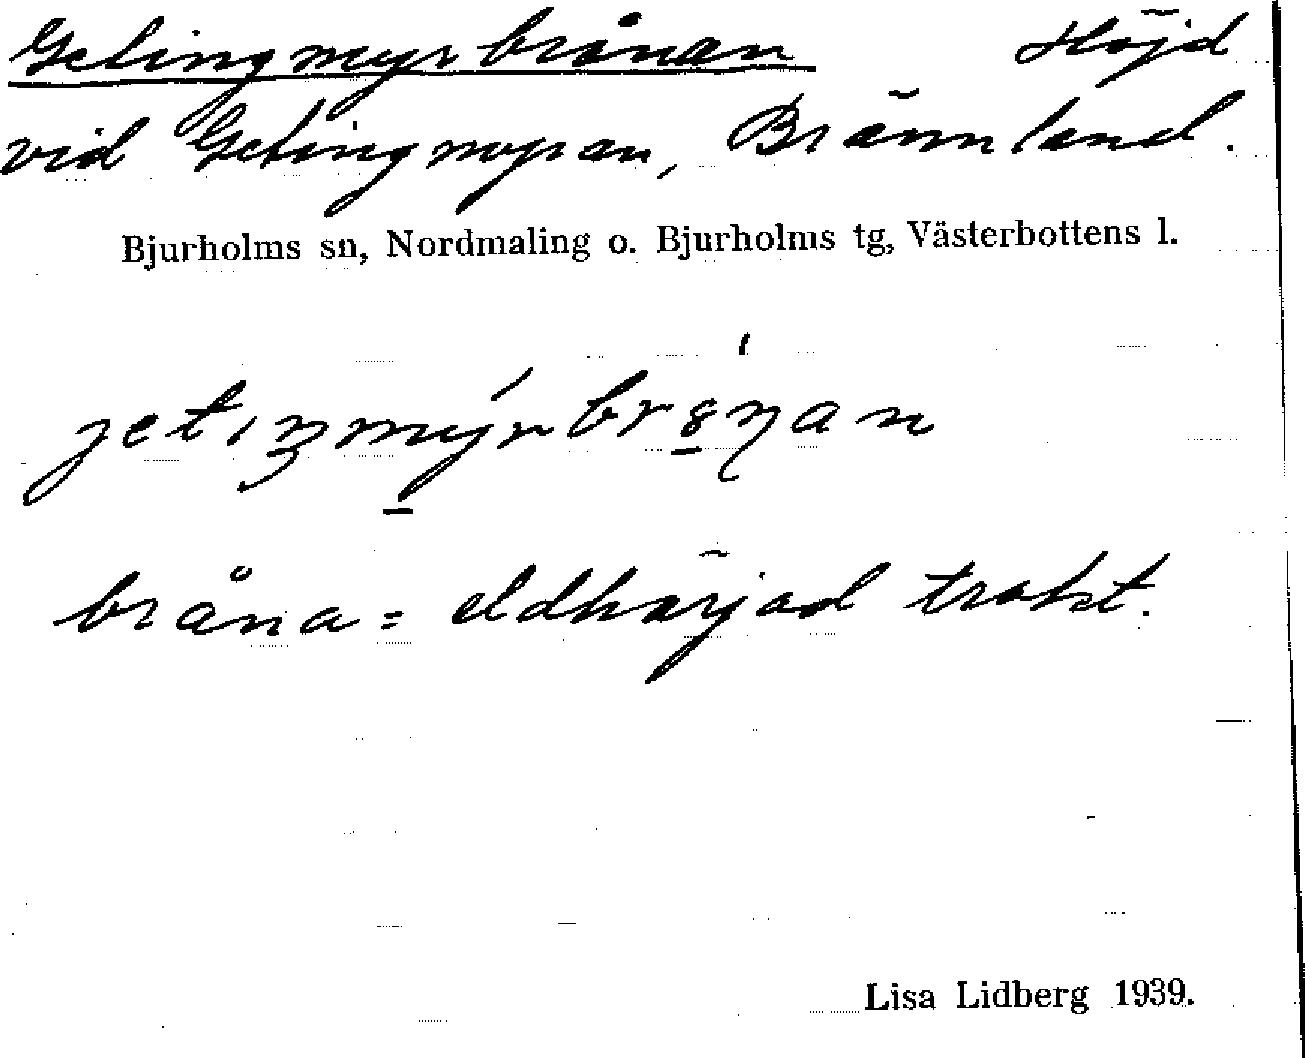 Getingmyrbrånan Höjd
vid Getingmyran, Brännland.
Bjurholms sn, Nordmaling o. Bjurholms tg, Västerbottens l.
bråna = eldhärjad trakt.
Lisa Lidberg 1939.